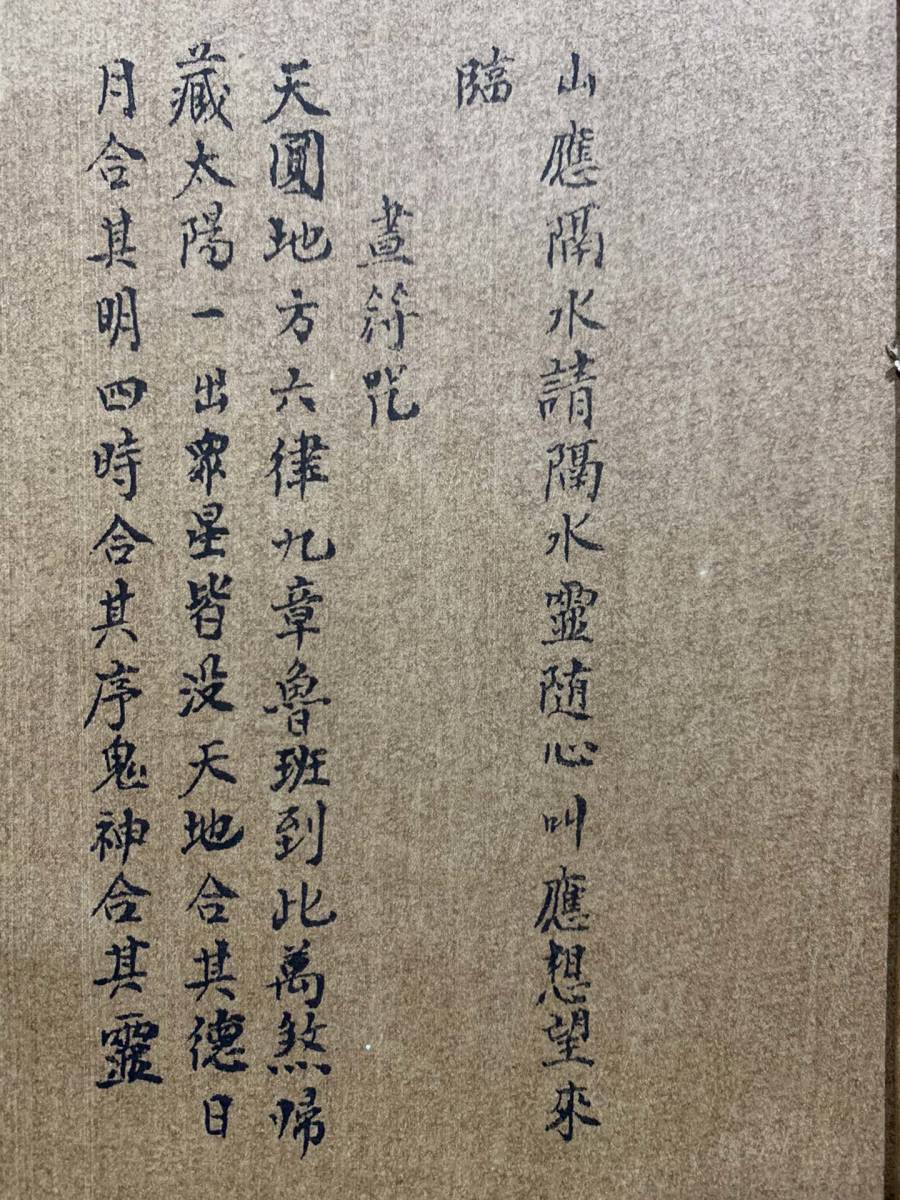 山應隔水請隔水靈随心叫應想望來
臨
畫符咒
天圓地方六律九章魯班到此萬煞歸
藏太陽一出眾星皆没天地合其德日
月合其明四時合其序鬼神合其靈